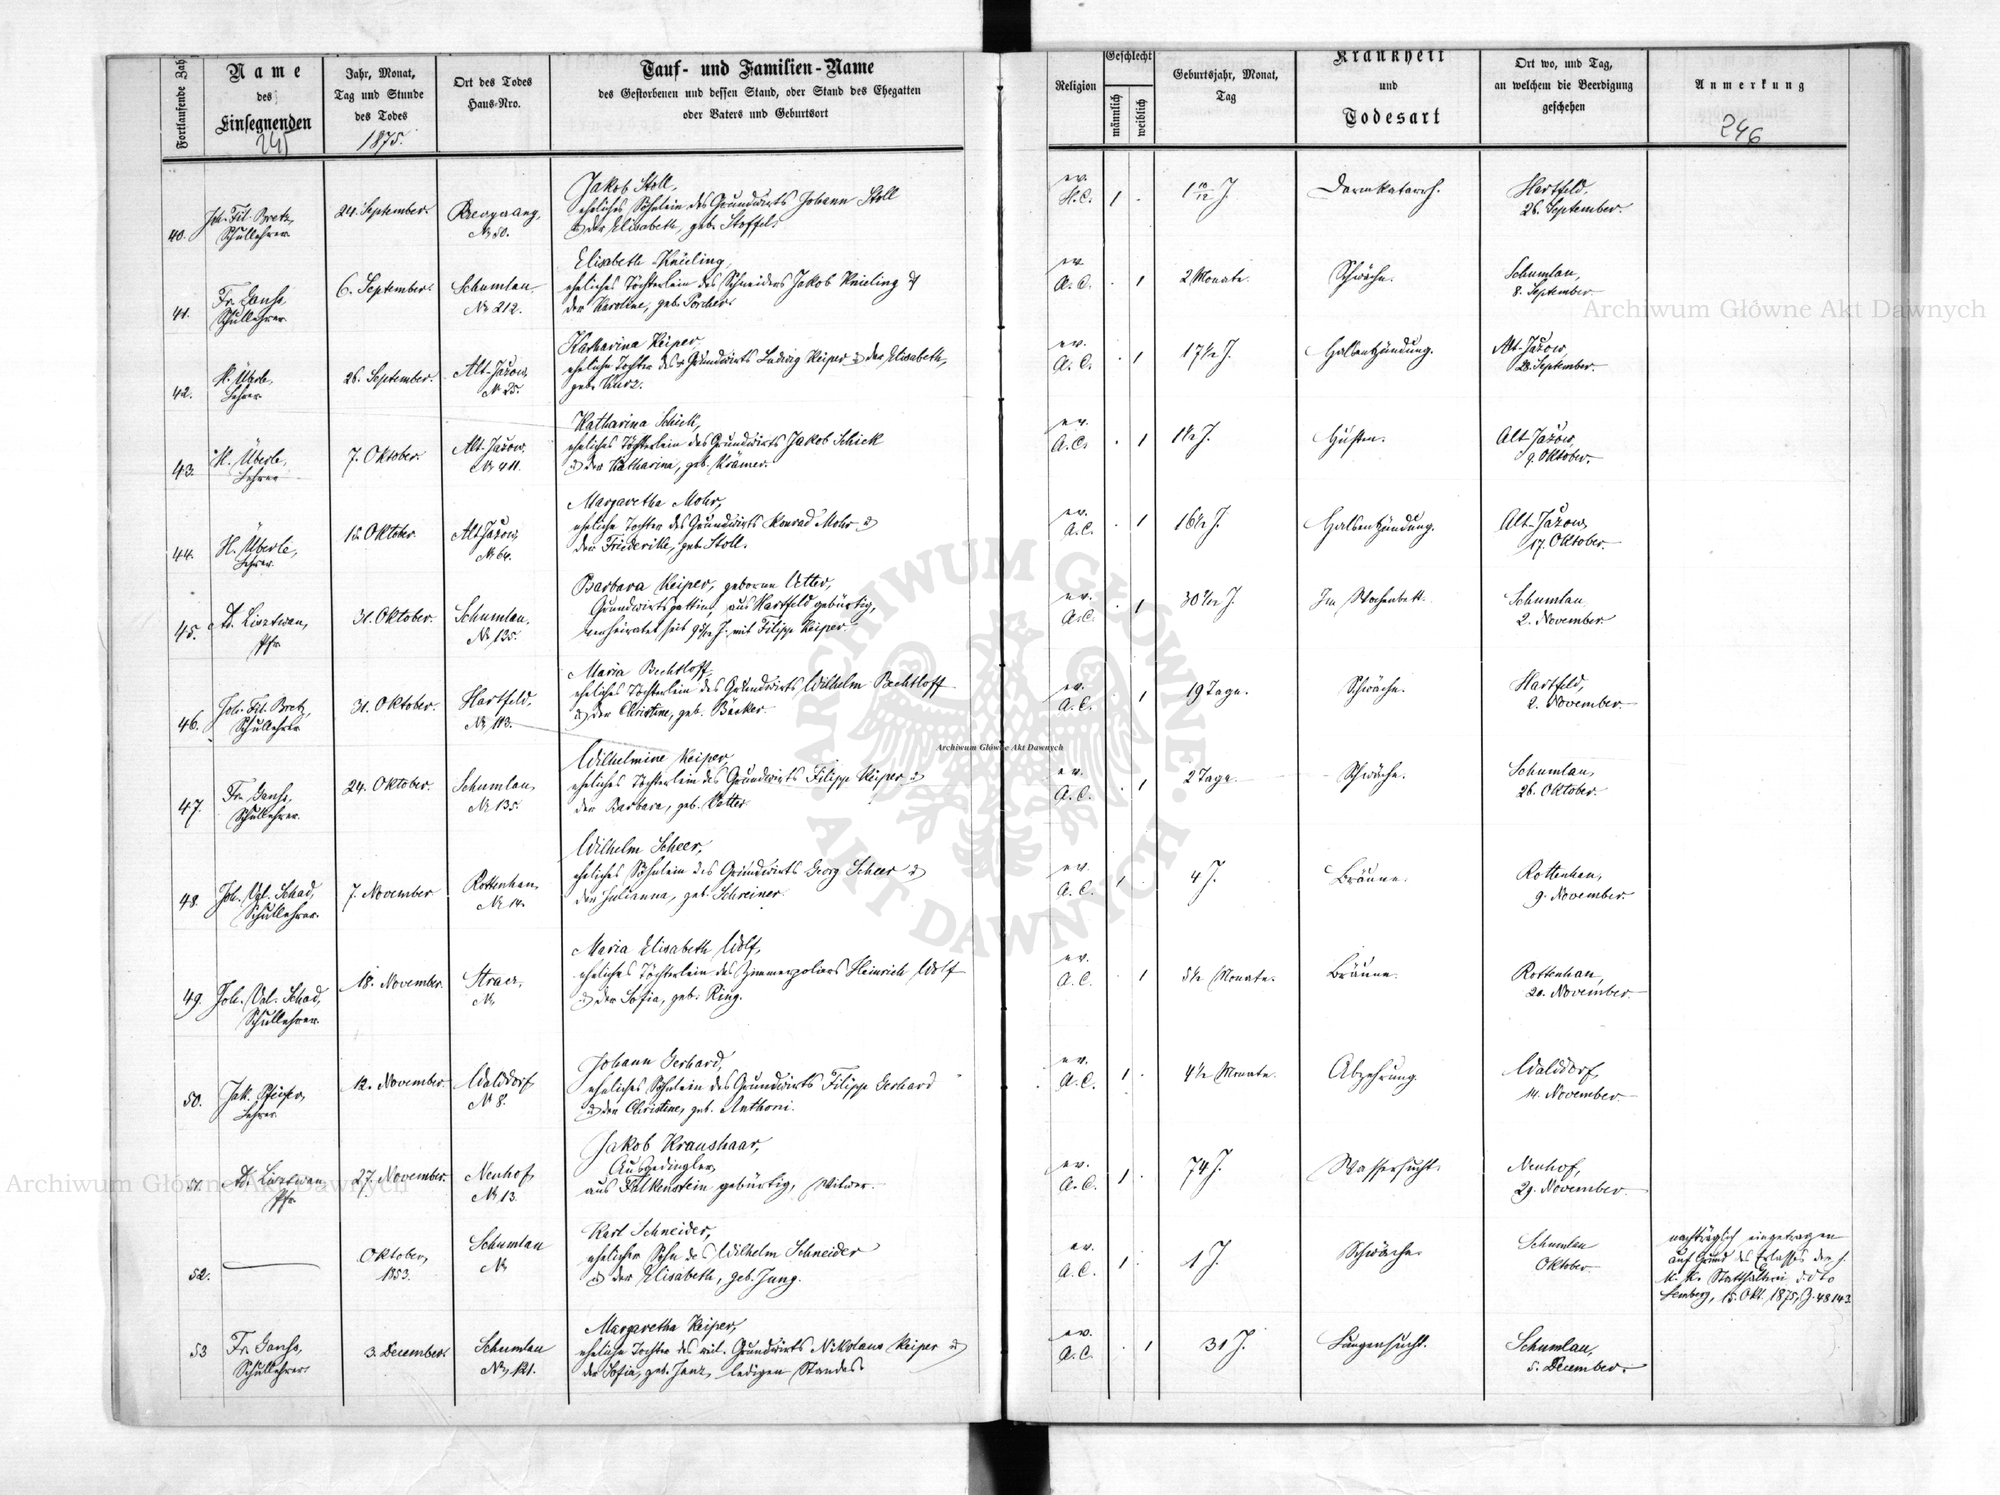 Fortlaufende Zahl
Name
des
Einsegnenden
245
Jahr, Monat,
Tag und Stunde
des Todes
1875.
Ort des Todes
Haus-Nro.
Tauf- und Familien-Name
des Gestorbenen und dessen Stand, oder Stand des Ehegatten
oder Vaters und Geburtsort
Religion
Geschlecht
männlich
weiblich
Geburtsjahr, Monat,
Tag
Krankheit
und
Todesart
Ort wo, und Tag,
an welchem die Beerdigung
geschehen
Anmerkung
246
40.
Joh. Fil. Bretz,
Schullehrer.
24. September.
№ 50.
Jakob Stoll,
eheliches Söhnlein des Grundwirts Johann Stoll
u. der Elisabeth, geb. Stoffel.
ev.
H.C.
1
1 10/12 J.
Darmkatarrh.
Hartfeld,
26. September.
41.
Fr. Ganhs,
Schullehrer.
6. September.
Schumlau.
№ 212.
Elisabeth Knieling,
eheliches Töchterlein des Schneiders Jakob Knieling u.
der Karoline, geb. Porcher.
ev.
A.C.
1
2 Monate.
Schwäche.
Schumlau,
8. September.
42.
H. Überle,
Lehrer.
26. September.
Alt-Jažow,
№ 25.
Katharina Keiper,
eheliche Tochter des Grundwirts Ludwig Keiper u. der Elisabeth,
geb. Kurz.
ev.
A.C.
1
17½ J.
Halsentzündung.
Alt-Jažow,
28. September.
43.
H. Überle,
Lehrer
7. Oktober.
Alt-Jažow.
№ 44.
Katharina Schick,
eheliches Töchterlein des Grundwirts Jakob Schick
u. der Katharina, geb. Krämer.
ev.
A.C.
1
1½ J.
Husten.
Alt-Jažow,
9. Oktober.
44.
H. Überle,
Lehrer.
15. Oktober.
Alt-Jažow,
№ 64.
Margaretha Mohr,
eheliche Tochter des Grundwirts Konrad Mohr u.
der Friederike, geb. Stoll.
ev.
A.C.
1
16½ J.
Halsentzündung.
Alt-Jažow,
17. Oktober.
45.
Pfr.
31. Oktober.
Schumlau.
№ 135.
Barbara Keiper, geborne Vetter,
Grundwirtsgattin, aus Hartfeld gebürtig,
verheiratet seit J. mit Filipp Keiper.
ev.
A.C.
1
J.
Im Wochenbett.
Schumlau
2. November.
46.
Joh. Fil. Bretz,
Schullehrer
31. Oktober.
Hartfeld,
№ 113.
Maria Bechtloff,
eheliches Töchterlein des Grundwirts Wilhelm Bechtloff
u. der Christine, geb. Bäcker.
ev.
A.C.
1
19 Tage.
Schwäche.
Hartfeld,
2. November.
47.
Fr. Ganhs,
Schullehrer.
24. Oktober.
Schumlau,
№ 135.
Wilhelmine Keiper,
eheliches Töchterlein des Grundwirts Filipp Keiper u.
der Barbara, geb. Vetter.
ev.
A.C.
1
2 Tage.
Schwäche.
Schumlau,
26. Oktober.
48.
Joh. Val. Schad,
Schullehrer.
7. November
Rottenhan,
№ 14.
Wilhelm Scheer,
eheliches Söhnlein des Grundwirts Georg Scheer u.
der Julianna, geb. Schreiner.
ev.
A.C.
1
4 J.
Bräune.
Rottenhan,
9. November.
49.
Joh. Val. Schad,
Schullehrer.
18. November.
№
Maria Elisabeth Wolf,
eheliches Töchterlein des Zimmerpoliers Heinrich Wolf
u. der Sofia, geb. Ring.
ev.
A.C.
1
5½ Monate.
Bräune.
Rottenhan,
20. November.
50.
Lehrer.
12. November.
Walddorf,
№ 8.
Johann Gerhard,
eheliches Söhnlein des Grundwirts Filipp Gerhard
u. der Christine, geb. Anthoni.
ev.
A.C.
1
4½ Monate.
Abzehrung.
Walddorf,
14. November.
51.
Pfr.
27. November.
Neuhof,
№ 13.
Jakob Kraushaar,
Ausgedingler,
aus Falkenstein gebürtig, Witwer.
ev.
A.C.
1
74 J.
Wassersucht.
Neuhof,
29. November.
52.
Oktober,
1853.
Schumlau
№
Karl Schneider,
ehelicher Sohn des Wilhelm Schneider
u. der Elisabeth, geb. Jung.
ev.
A.C.
1
1 J.
Schwäche.
Schumlau
Oktober.
nachträglich eingetragen
auf Grund des Erlasses der h.
k. k. Statthalterei ddto
Lemberg, 15. Okt. 1875, Z. 48143.
53
Fr. Ganhs,
Schullehrer.
3. December.
Schumlau
№ 121.
Margaretha Keiper,
eheliche Tochter des Grundwirts Nikolaus Keiper u.
der Sofia, geb. Janz, ledigen Standes
ev.
A.C.
1
31 J.
Lungensucht.
Schumlau,
5. December.
Archiwum Główne Akt Dawnych
ARCHIWUM GŁÓWNE
AKT DAWNYCH
Archiwum Główne Akt Dawnych
Archiwum Główne Akt Dawnych